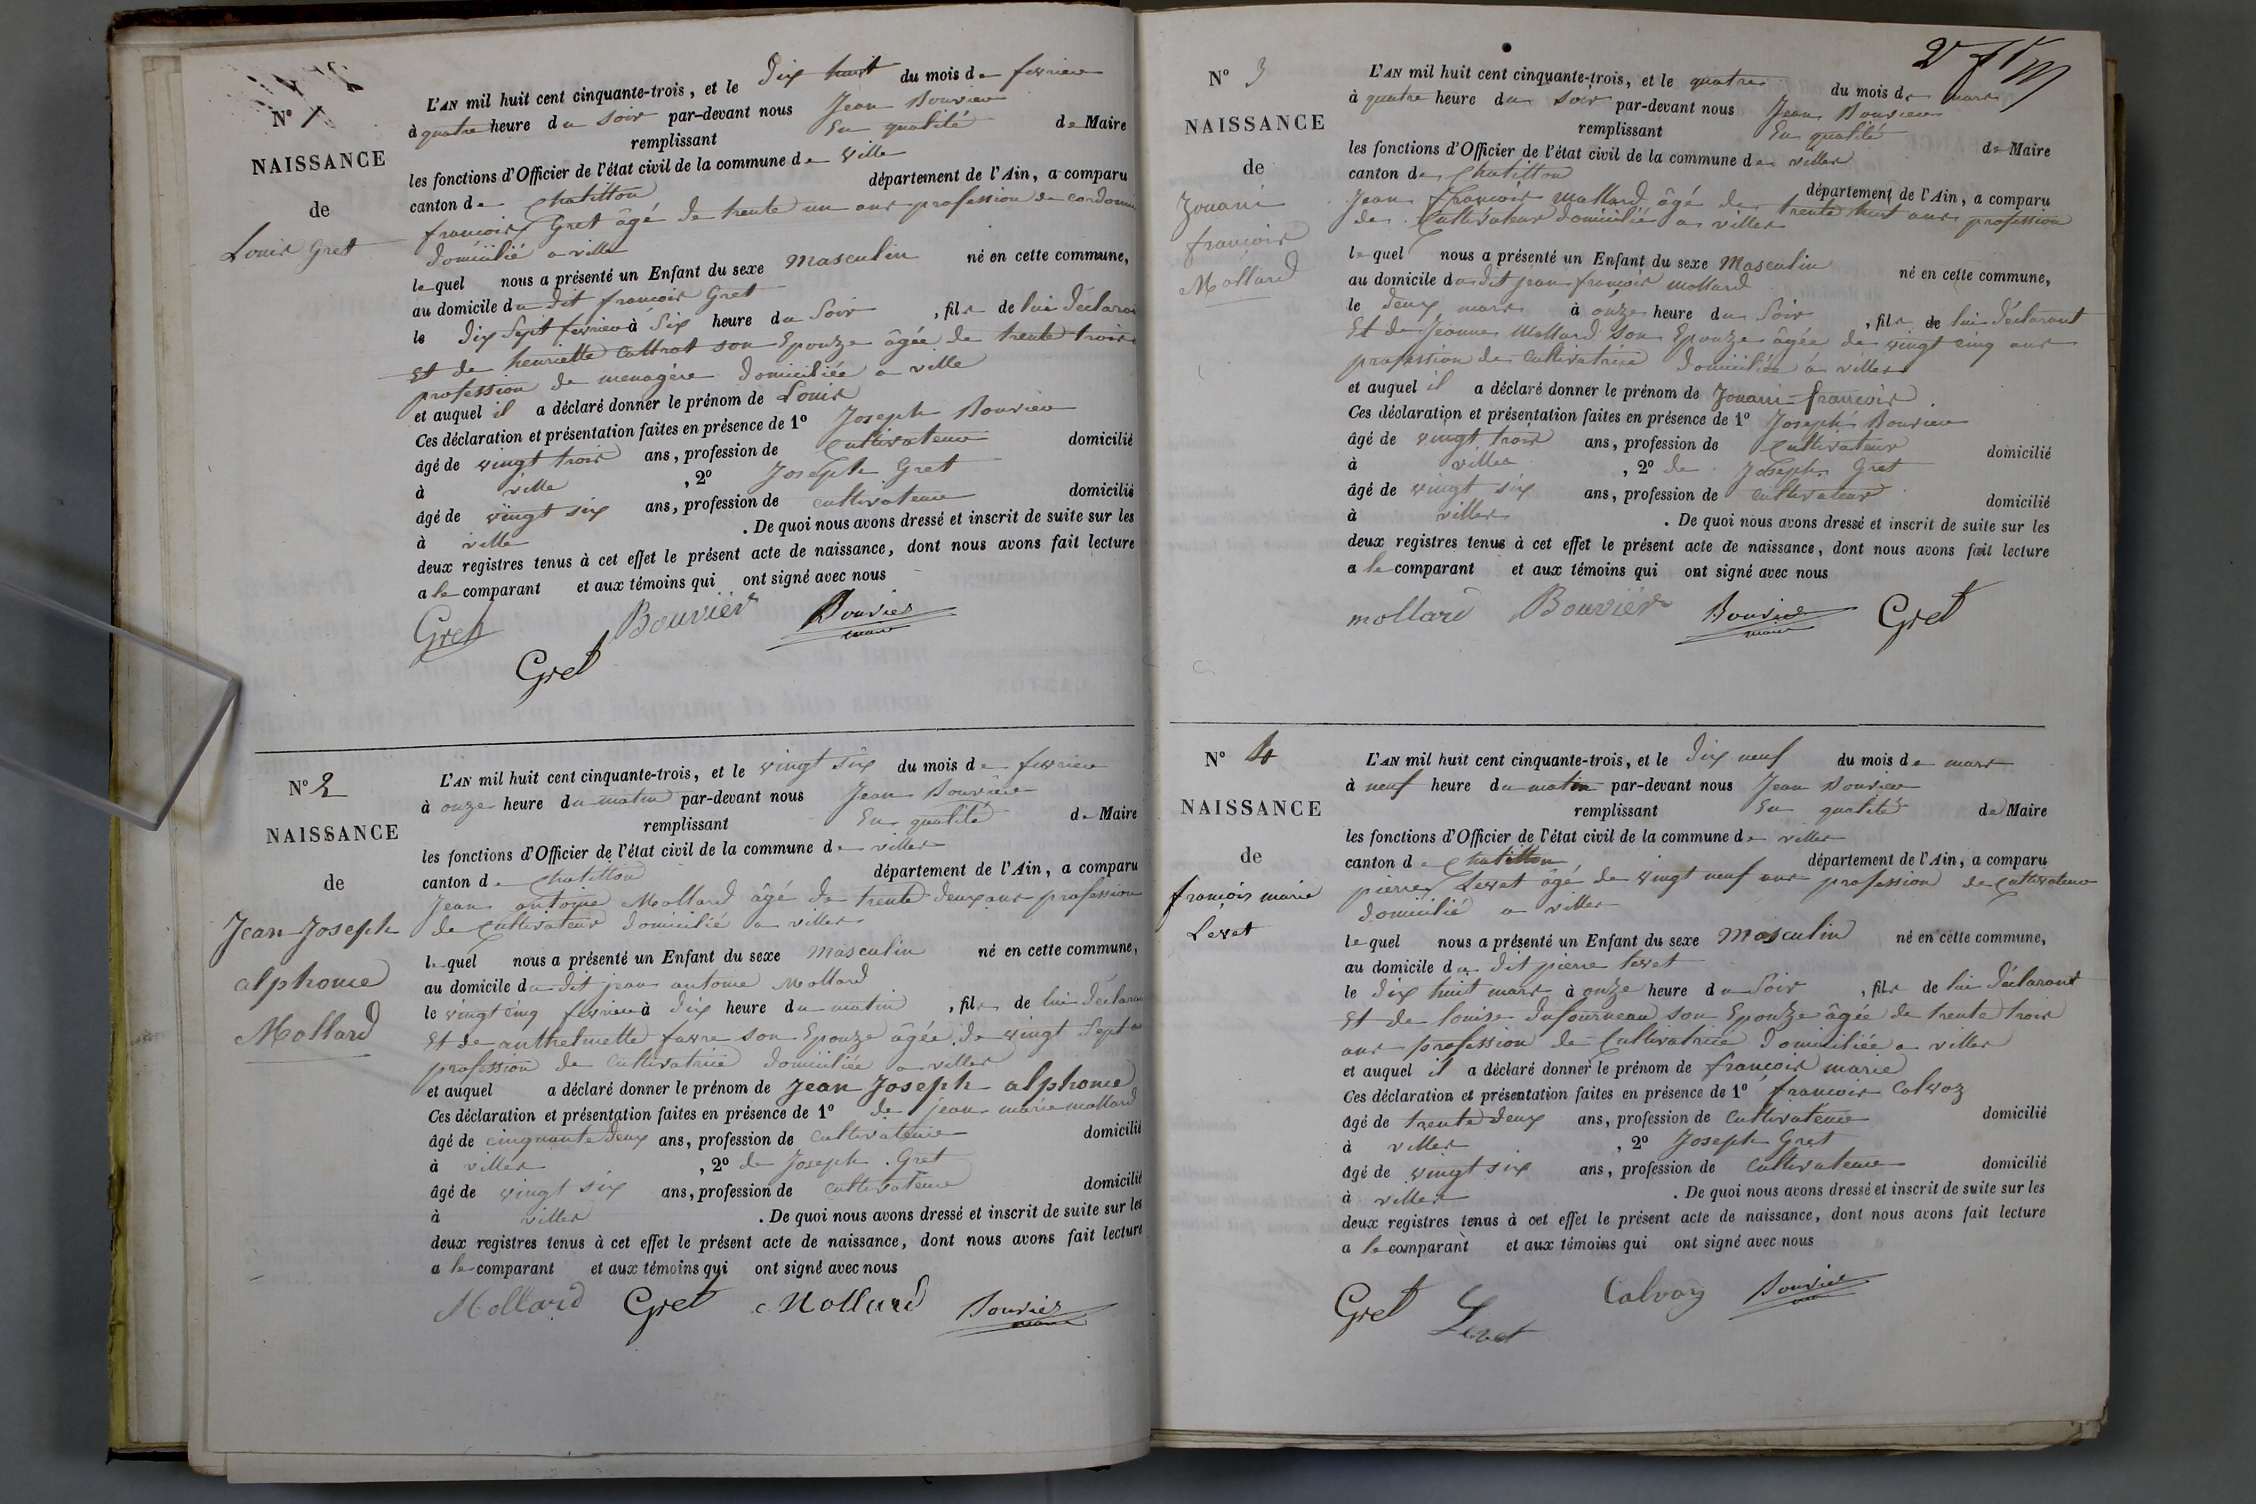 N° 1
NAISSANCE
de
Louis Gret
L'AN mil huit cent cinquante-trois, et le dix huit du mois de fevrier
à quatre heure du soir par-devant nous Jean Bouvier
remplissant En qualité de Maire
les fonctions d'Officier de l'état civil de la commune de Ville
canton de Chatillon département de l'Ain, a comparu
francois Gret âgé de trente un ans profession de cordonnier
domicilié a ville
lequel nous a présenté un Enfant du sexe Masculin né en cette commune,
au domicile du dit francois Gret
le dix Sept fevrier à Six heure du Soir, fils de lui déclarant
Et de henriette son Epouze âgée de trente trois
profession de menagère domiciliée a ville
et auquel il a déclaré donner le prénom de Louis
Ces déclaration et présentation faites en présence de 1° Joseph Bouvier
âgé de vingt trois ans, profession de Cultivateur domicilié
à ville, 2° Joseph Gret
âgé de vingt six ans, profession de cultivateur domicilié
à ville. De quoi nous avons dressé et inscrit de suite sur les
deux registres tenus à cet effet le présent acte de naissance, dont nous avons fait lecture
a le comparant et aux témoins qui ont signé avec nous
Gret Bouvier Bouvier
maire
Gret
N° 2
NAISSANCE
de
Jean Joseph
alphonce
Mollard
L'AN mil huit cent cinquante-trois, et le vingt Six du mois de fevrier
à onze heure du matin par-devant nous Jean Bouvier
remplissant En qualité de Maire
les fonctions d'Officier de l'état civil de la commune de villes
canton de Chatillon département de l'Ain, a comparu
Jean antoine Mollard âgé de trente deux ans profession
de Cultivateur domicilié a villes
lequel nous a présenté un Enfant du sexe Masculin né en cette commune,
au domicile du dit jean antoine Mollard
le vingt cinq fevrier à dix heure du matin, fils de lui déclarant
Et de anthelmette favre son Epouze âgée de vingt Sept ans
profession de cultivatrice domiciliée a villes
et auquel a déclaré donner le prénom de jean Joseph alphonce
Ces déclaration et présentation faites en présence de 1° de jean marie mollard
âgé de cinquante deux ans, profession de cultivateur domicilié
à villes, 2° de Joseph Gret
âgé de vingt six ans, profession de cultivateur domicilié
à villes. De quoi nous avons dressé et inscrit de suite sur les
deux registres tenus à cet effet le présent acte de naissance, dont nous avons fait lecture
a le comparant et aux témoins qui ont signé avec nous
Mollard Gret Mollard Bouvier
maire
N° 3
NAISSANCE
de
Jouani
françois
Mollard
L'AN mil huit cent cinquante-trois, et le quatre du mois de mars
à quatre heure du soir par-devant nous Jean Bouvier
remplissant En qualité de Maire
les fonctions d'Officier de l'état civil de la commune de villes
canton de Chatillon département de l'Ain, a comparu
Jean François Mollard âgé de trente huit ans profession
de Cultivateur domicilié a villes
lequel nous a présenté un Enfant du sexe Masculin né en cette commune,
au domicile du dit jean françois mollard
le deux mars à onze heure du Soir, fils de lui déclarant
Et de Jeanne Mollard son Epouze âgée de vingt cinq ans
profession de Cultivatrice domiciliée a villes
et auquel il a déclaré donner le prénom de Jouani-françois
Ces déclaration et présentation faites en présence de 1° Joseph Bouvier
âgé de vingt trois ans, profession de Cultivateur domicilié
à villes, 2° de Joseph Gret
âgé de vingt six ans, profession de cultivateur domicilié
à villes. De quoi nous avons dressé et inscrit de suite sur les
deux registres tenus à cet effet le présent acte de naissance, dont nous avons fait lecture
a le comparant et aux témoins qui ont signé avec nous
mollard Bouvier Bouvier Gret
maire
N° 4
NAISSANCE
de
françois marie
Levet
L'AN mil huit cent cinquante-trois, et le dix neuf du mois de mars
à neuf heure du matin par-devant nous Jean Bouvier
remplissant En qualité de Maire
les fonctions d'Officier de l'état civil de la commune de villes
canton de Chatillon département de l'Ain, a comparu
pierre Levet âgé de vingt neuf ans profession de Cultivateur
domicilié a villes
lequel nous a présenté un Enfant du sexe Masculin né en cette commune,
au domicile du dit pierre levet
le dix huit mars à onze heure du Soir, fils de lui déclarant
Et de louise dufourneau son Epouze âgée de trente trois
ans profession de Cultivatrice domiciliée a villes
et auquel il a déclaré donner le prénom de françois marie
Ces déclaration et présentation faites en présence de 1° francois Calvoz
âgé de trente deux ans, profession de cultivateur domicilié
à villes, 2° Joseph Gret
âgé de vingt six ans, profession de cultivateur domicilié
à villes. De quoi nous avons dressé et inscrit de suite sur les
deux registres tenus à cet effet le présent acte de naissance, dont nous avons fait lecture
a le comparant et aux témoins qui ont signé avec nous
Gret Levet Calvoz Bouvier